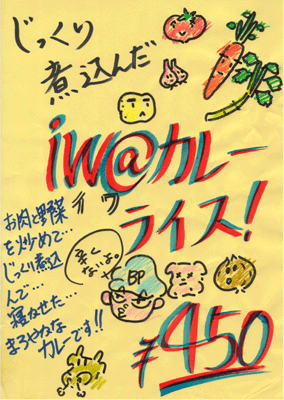 じっくり
煮込んだ
iw@カレー
イワ
ライス!
お肉と野菜
を炒めて…
じっくり煮込
んで…
寝かせた…
まろやかな
カレーです!!
辛く
ないよ。
¥450